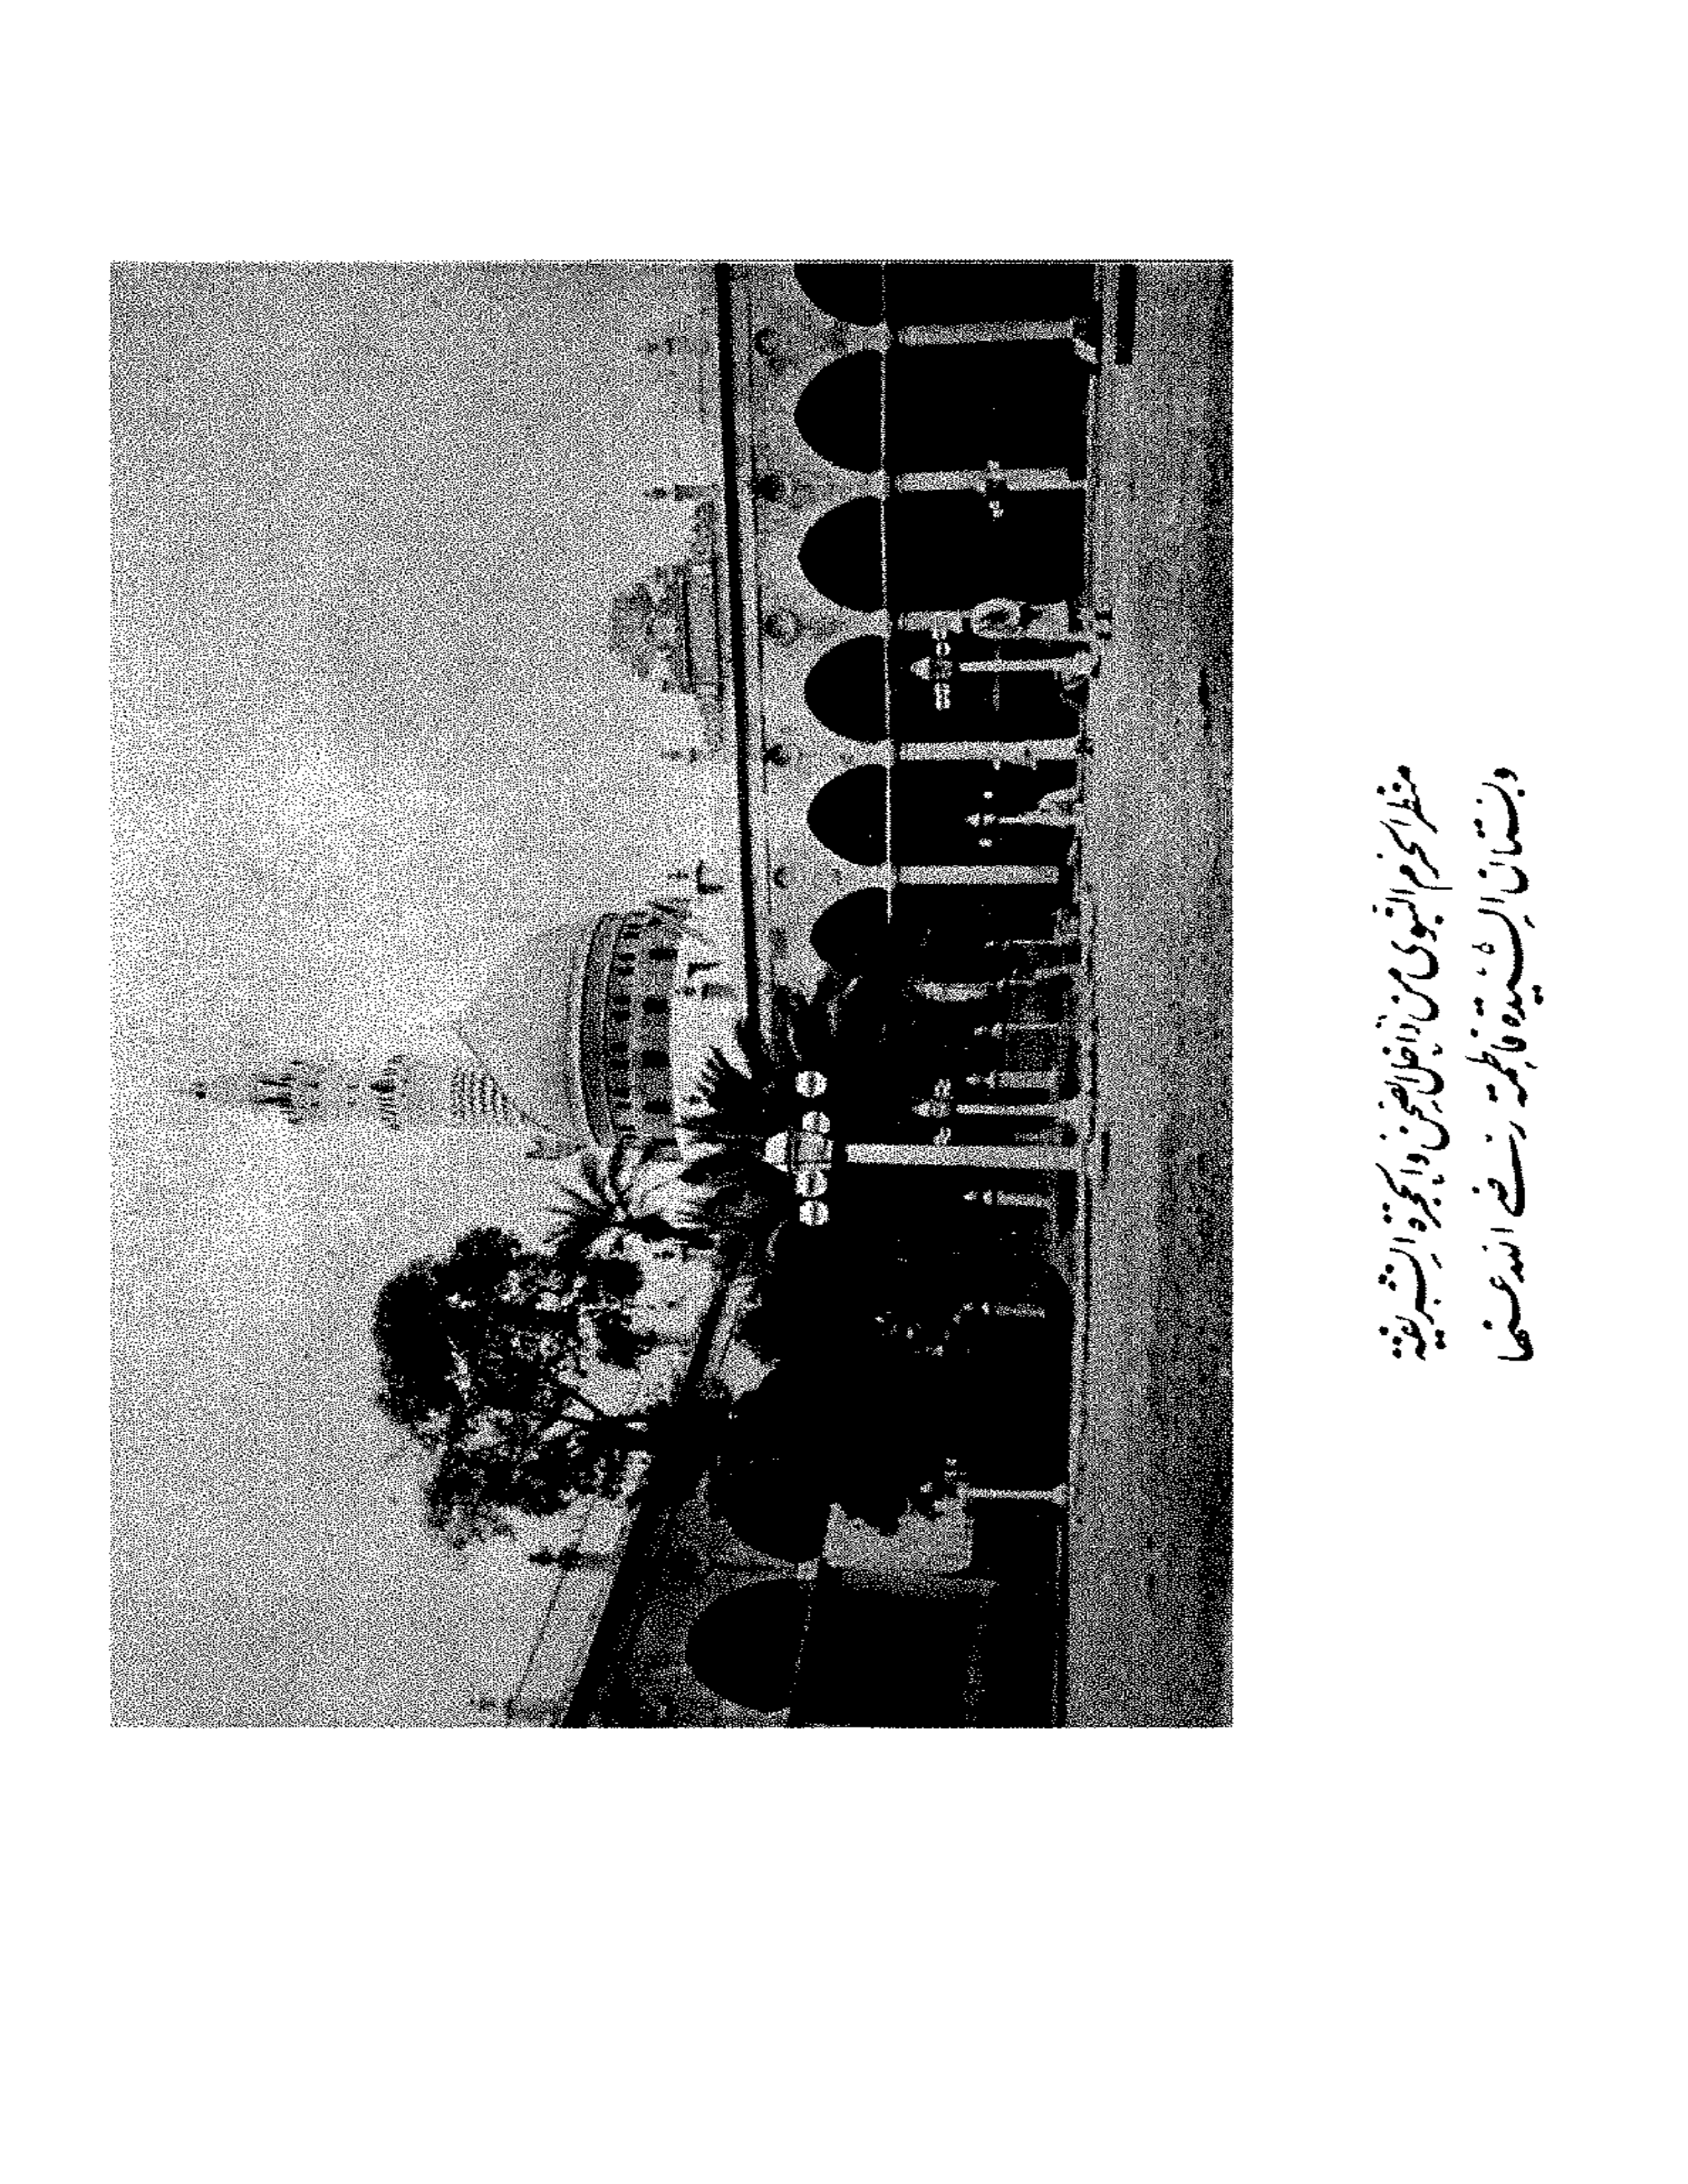 منظر الحرم النبوي من داخل الصحن والحجرة الشريفة
وبستان السيدة فاطمة رضي الله عنها